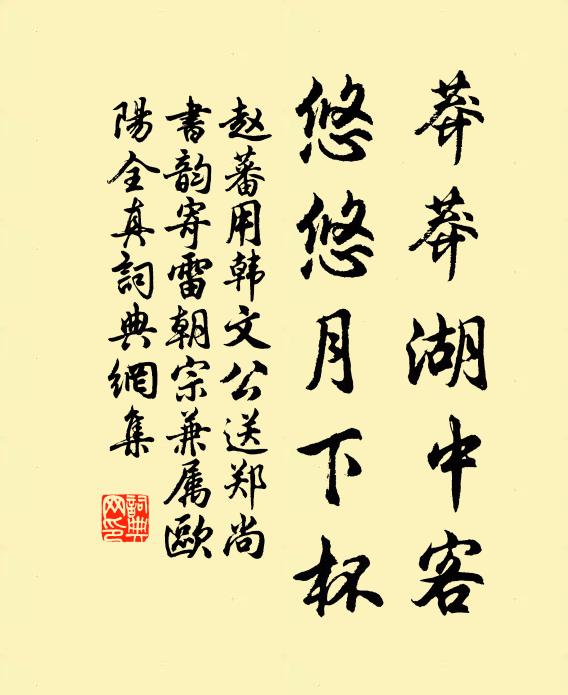 莽莽湖中客
悠悠月下杯
赵蕃用韩文公送郑尚
书韵寄雷朝宗兼属歐
陽全真詞典網集
詞典
网印